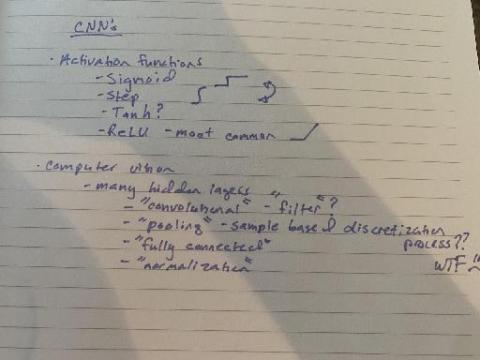 CNN's
· Activation functions
- Sigmoid
- Step
- Tanh?
- ReLU - most common
· Computer vision
- many hidden layers
- "convolutional" - "filter"?
- "pooling" - sample based discretization
process??
- "fully connected"
WTF
- "normalization"